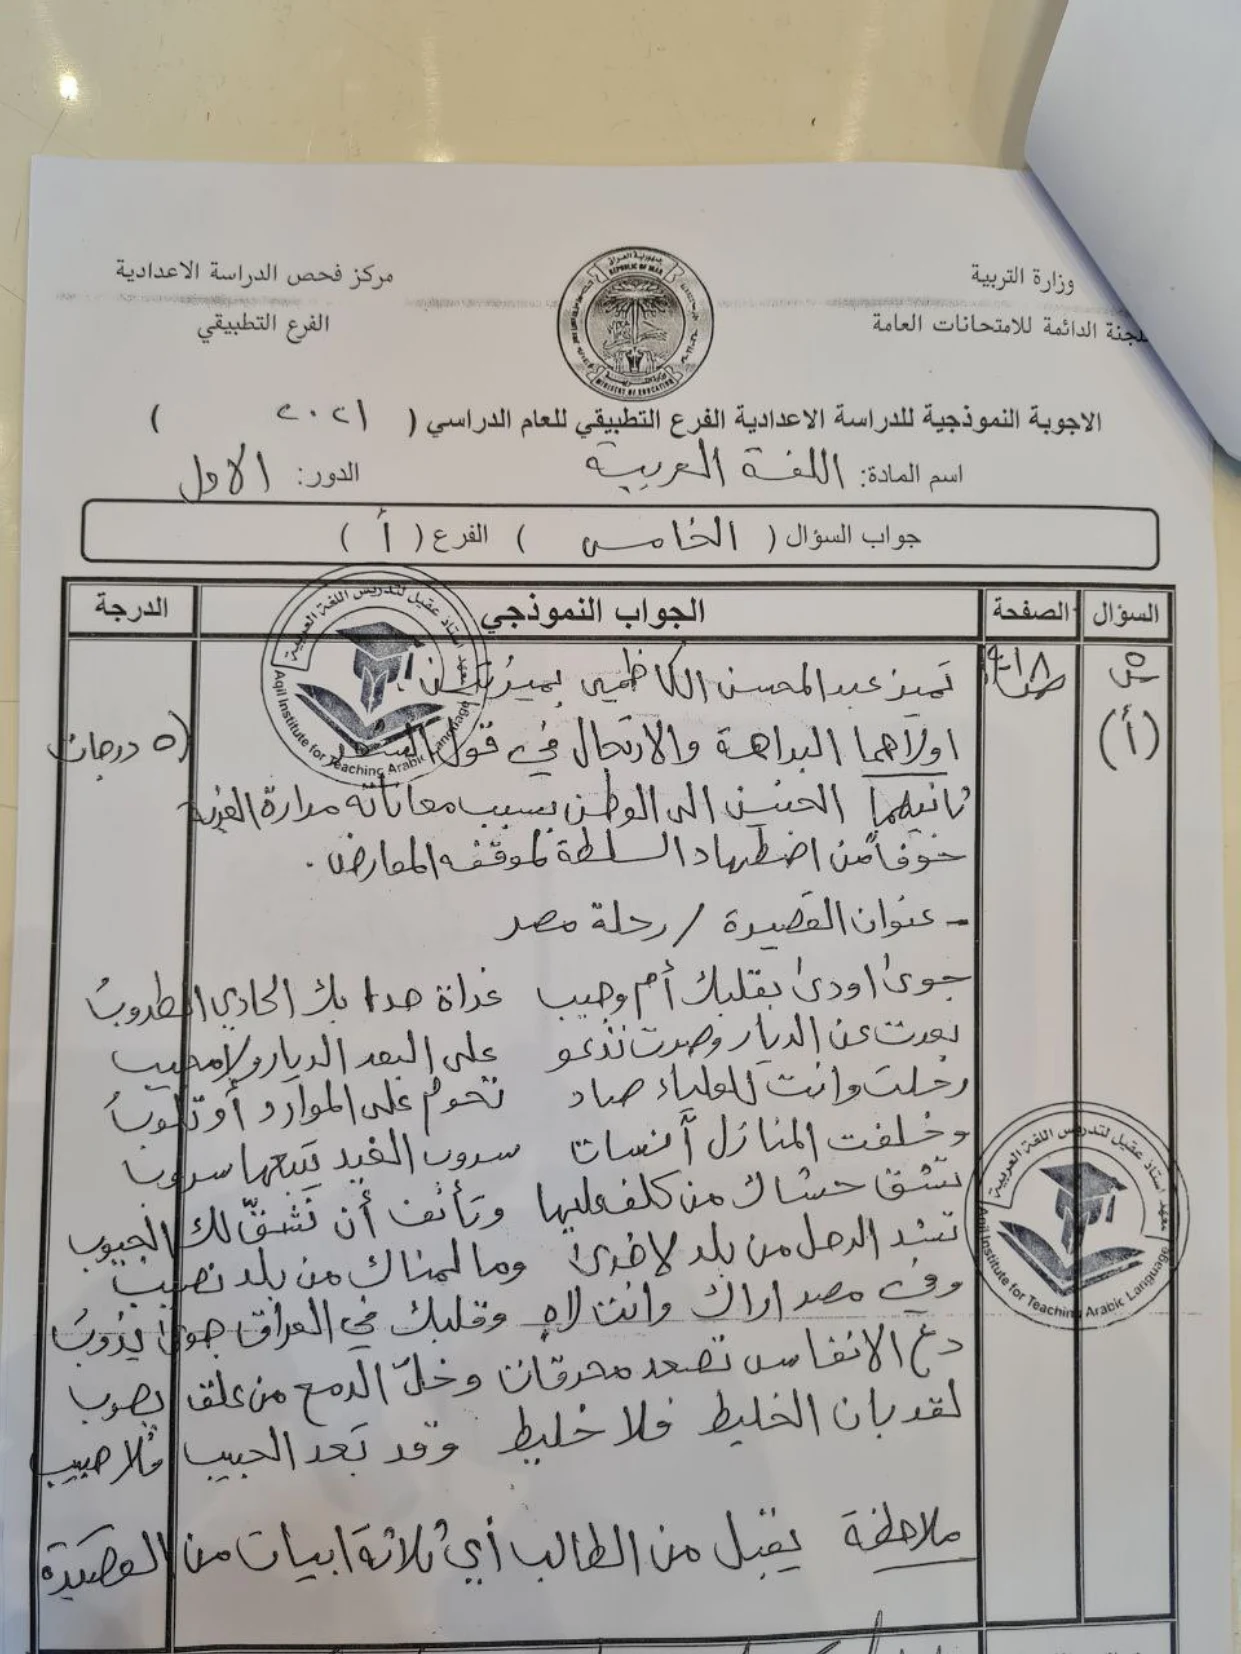 وزارة التربية
لجنة الدائمة للامتحانات العامة
جمهورية العراق
REPUBLIC OF IRAQ
MINISTRY OF EDUCATION
مركز فحص الدراسة الاعدادية
الفرع التطبيقي
الاجوبة النموذجية للدراسة الاعدادية الفرع التطبيقي للعام الدراسي ( ٢٠٢١ )
اسم المادة: اللغة العربية الدور: الاول
جواب السؤال ( الخامس ) الفرع ( أ )
السؤال الصفحة الجواب النموذجي الدرجة
س٥ تميز عبد المحسن الكاظمي بميزتين
(أ) اولاهما البداهة والارتجال في قول الشعر (٥ درجات
ثانيهما الحنين الى الوطن بسبب معاناته مرارة الغربة
خوفاً من اضطهاد السلطة لموقفه المعارض .
- عنوان القصيدة / رحلة مصر
جوىً اودىٰ بقلبك أم وجيب غداة حدا بك الحادي الطروبُ
بعدت عن الديار وصرت تدعو على البعد الديار ولا مجيب
رحلت وانت للعلياء صاد تحوم على الموارد أو تلوبُ
وخلفت المنازل آنسات سروب الغيد يتبعها سروب
تشق حشاك من كلف عليها وتأنف أن تُشقّ لك الجيوب
تشد الرحل من بلد لاخرىٰ وما لمناك من بلد نصيب
وفي مصر اراك وانت لاهٍ وقلبك في العراق جوىً يذوبُ
دع الانفاس تصعد محرقات وخلّ الدمع من علق يصوب
لقد بان الخليط فلا خليط وقد بَعد الحبيب فلا حبيب
ملاحظة يقبل من الطالب أي ثلاثة ابيات من القصيدة
معهد استاذ عقيل لتدريس اللغة العربية
Aqil Institute for Teaching Arabic Language
معهد استاذ عقيل لتدريس اللغة العربية
Aqil Institute for Teaching Arabic Language